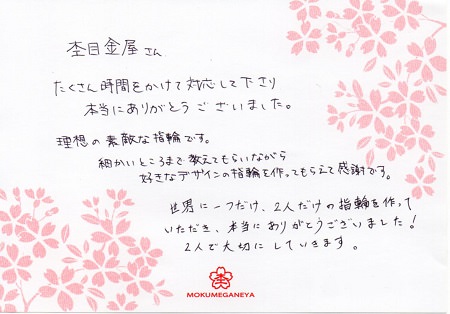 杢目金屋さん
たくさん時間をかけて対応して下さり
本当にありがとうございました。
理想の素敵な指輪です。
細かいところまで教えてもらいながら
好きなデザインの指輪を作ってもらえて感謝です。
世界に一つだけ、2人だけの指輪を作って
いただき、本当にありがとうございました!
2人で大切にしていきます。
杢
MOKUMEGANEYA